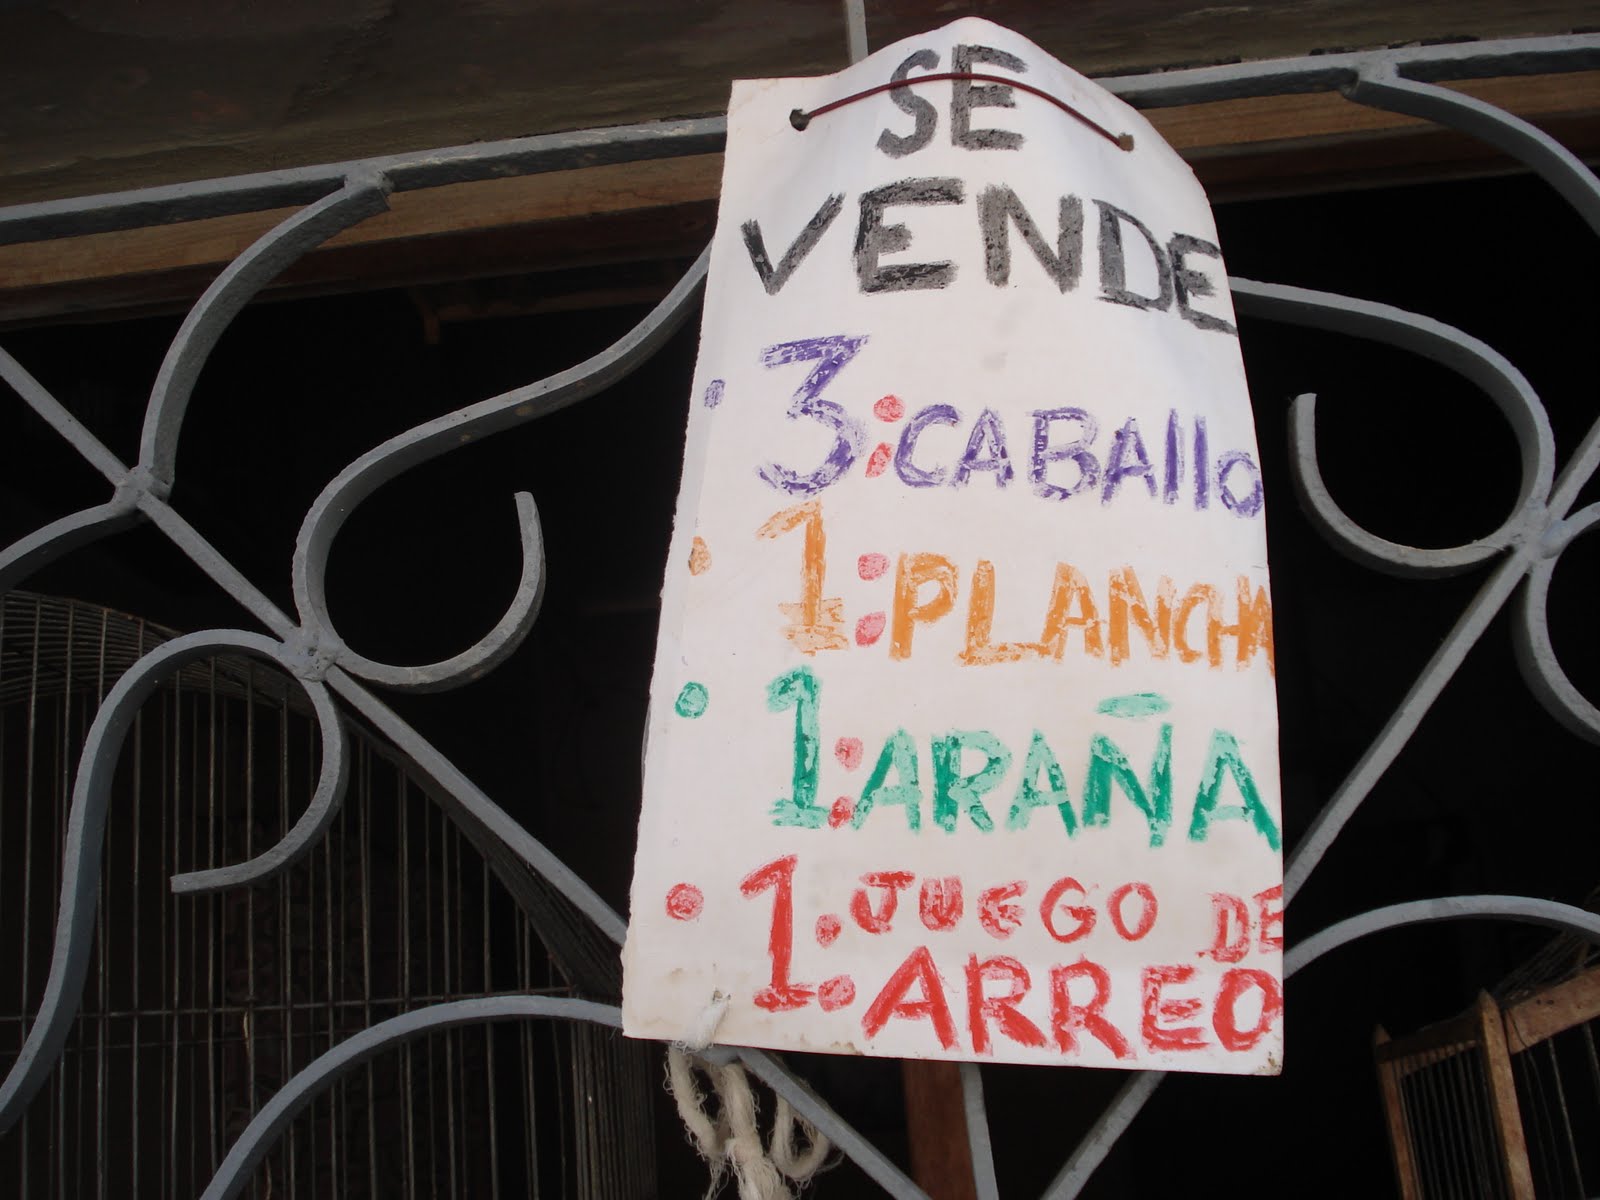 SE
VENDE
• 3:CABAllO
• 1:PLANCHA
• 1:ARAÑA
• 1:JUEGO DE
ARREO